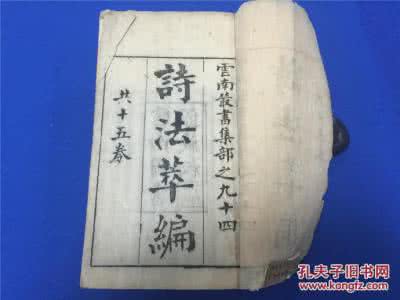 雲南叢書集部之九十四
詩法萃編
共十五卷
孔夫子旧书网
kongfz.com